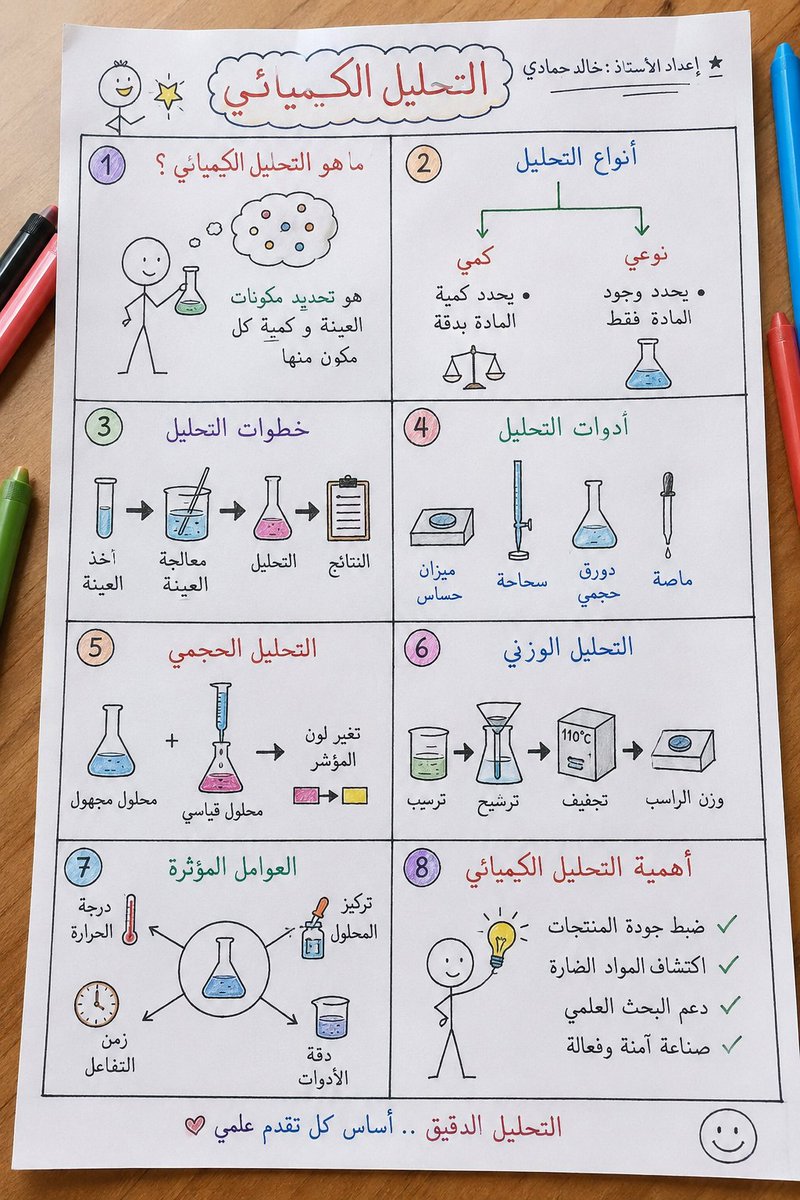 التحليل الكيميائي
★ إعداد الأستاذ : خالد حمادي
1
ما هو التحليل الكيميائي ؟
هو تحديد مكونات
العينة و كمية كل
مكون منها
2
أنواع التحليل
نوعي
• يحدد وجود
المادة فقط
كمي
• يحدد كمية
المادة بدقة
3
خطوات التحليل
أخذ
العينة
معالجة
العينة
التحليل
النتائج
4
أدوات التحليل
ماصة
دورق
حجمي
سحاحة
ميزان
حساس
5
التحليل الحجمي
محلول مجهول
+
محلول قياسي
تغير لون
المؤشر
6
التحليل الوزني
ترسيب
ترشيح
110°C
تجفيف
وزن الراسب
7
العوامل المؤثرة
تركيز
المحلول
درجة
الحرارة
زمن
التفاعل
دقة
الأدوات
8
أهمية التحليل الكيميائي
✓ ضبط جودة المنتجات
✓ اكتشاف المواد الضارة
✓ دعم البحث العلمي
✓ صناعة آمنة وفعالة
التحليل الدقيق .. أساس كل تقدم علمي